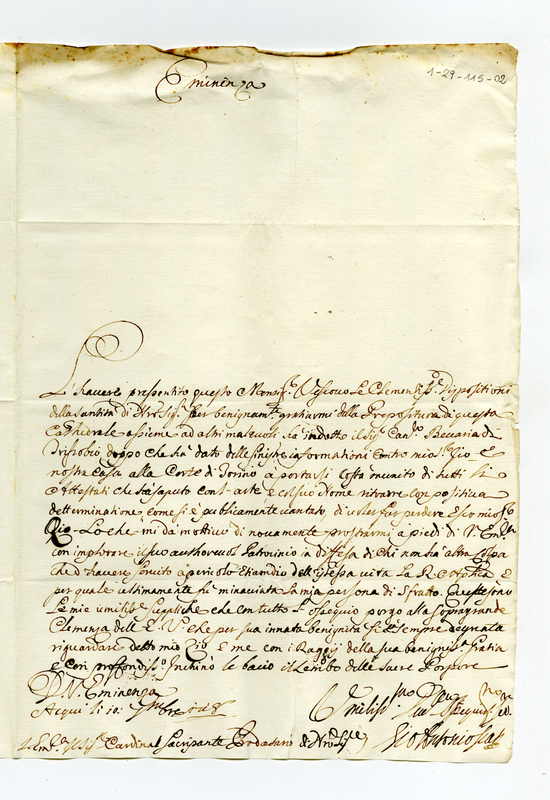 1-29-115-02
Eminenza
L'havere presentito questo Monsig.r Vescovo le Clementiss.e Dispositioni
della Santità di Nro Sig.re per benignam.te gratiarmi della Prepositura di questa
Cathedrale assieme ad altri malevoli ha indotto il Sig.r Can.co Beccaria di
doppo che ha dato delle sinistre informationi contro mio Zio e
nostra Casa alla Corte di Torino à portarsi costà munito di tutti li
Attestati che ha saputo con l'arte e col suo Nome ritrare con positiva
determinatione come si è publicamente vantato, di voler far perdere esso mio S.r
Zio. Lo che mi dà mottivo di novamente prostrarmi a piedi di V. Em.za
con implorare il suo authorevol Patrocinio in diffesa di chi non hà altra colpa
che d'havere servito à pericolo etiamdio dell'istessa vita la R.
per quale ultimamente fù minaciata la mia persona di sfratto. Queste sono
le mie umiliss.e suppliche che con tutto l'ossequio porgo alla sopragrande
Clemenza dell'E. V. che per sua innata benignità si è sempre degnata
riguardare detto mio Zio e me con i Raggi della sua benigniss.a gratia
e con profondiss.o Inchino le bacio il Lembo delle Sacre Porpore
D. V. Eminenza
Acqui li 10:
Umiliss.mo
Em.o Sig.r Cardinal Sacripante Prodatario di Nro Sig.re
Gio Antonio